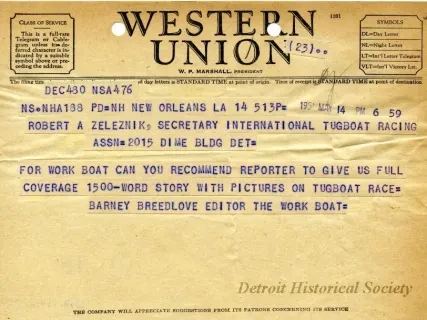 CLASS OF SERVICE
This is a full-rate Telegram or Cablegram unless its deferred character is indicated by a suitable symbol above or preceding the address.
WESTERN
UNION
1201
(23)..
W. P. MARSHALL, PRESIDENT
SYMBOLS
DL=Day Letter
NL=Night Letter
LT=Int'l Letter Telegram
VLT=Int'l Victory Ltr.
The filing time
of day letters is STANDARD TIME at point of origin. Time of receipt is STANDARD TIME at point of destination.
DEC480 NSA476
NS.NHA188 PD=NH NEW ORLEANS LA 14 513P=
MAY 14 PM 6 59
ROBERT A ZELEZNIK, SECRETARY INTERNATIONAL TUGBOAT RACING
ASSN=2015 DIME BLDG DET=
FOR WORK BOAT CAN YOU RECOMMEND REPORTER TO GIVE US FULL
COVERAGE 1500-WORD STORY WITH PICTURES ON TUGBOAT RACE=
BARNEY BREEDLOVE EDITOR THE WORK BOAT=
Detroit Historical Society
THE COMPANY WILL APPRECIATE SUGGESTIONS FROM ITS PATRONS CONCERNING ITS SERVICE